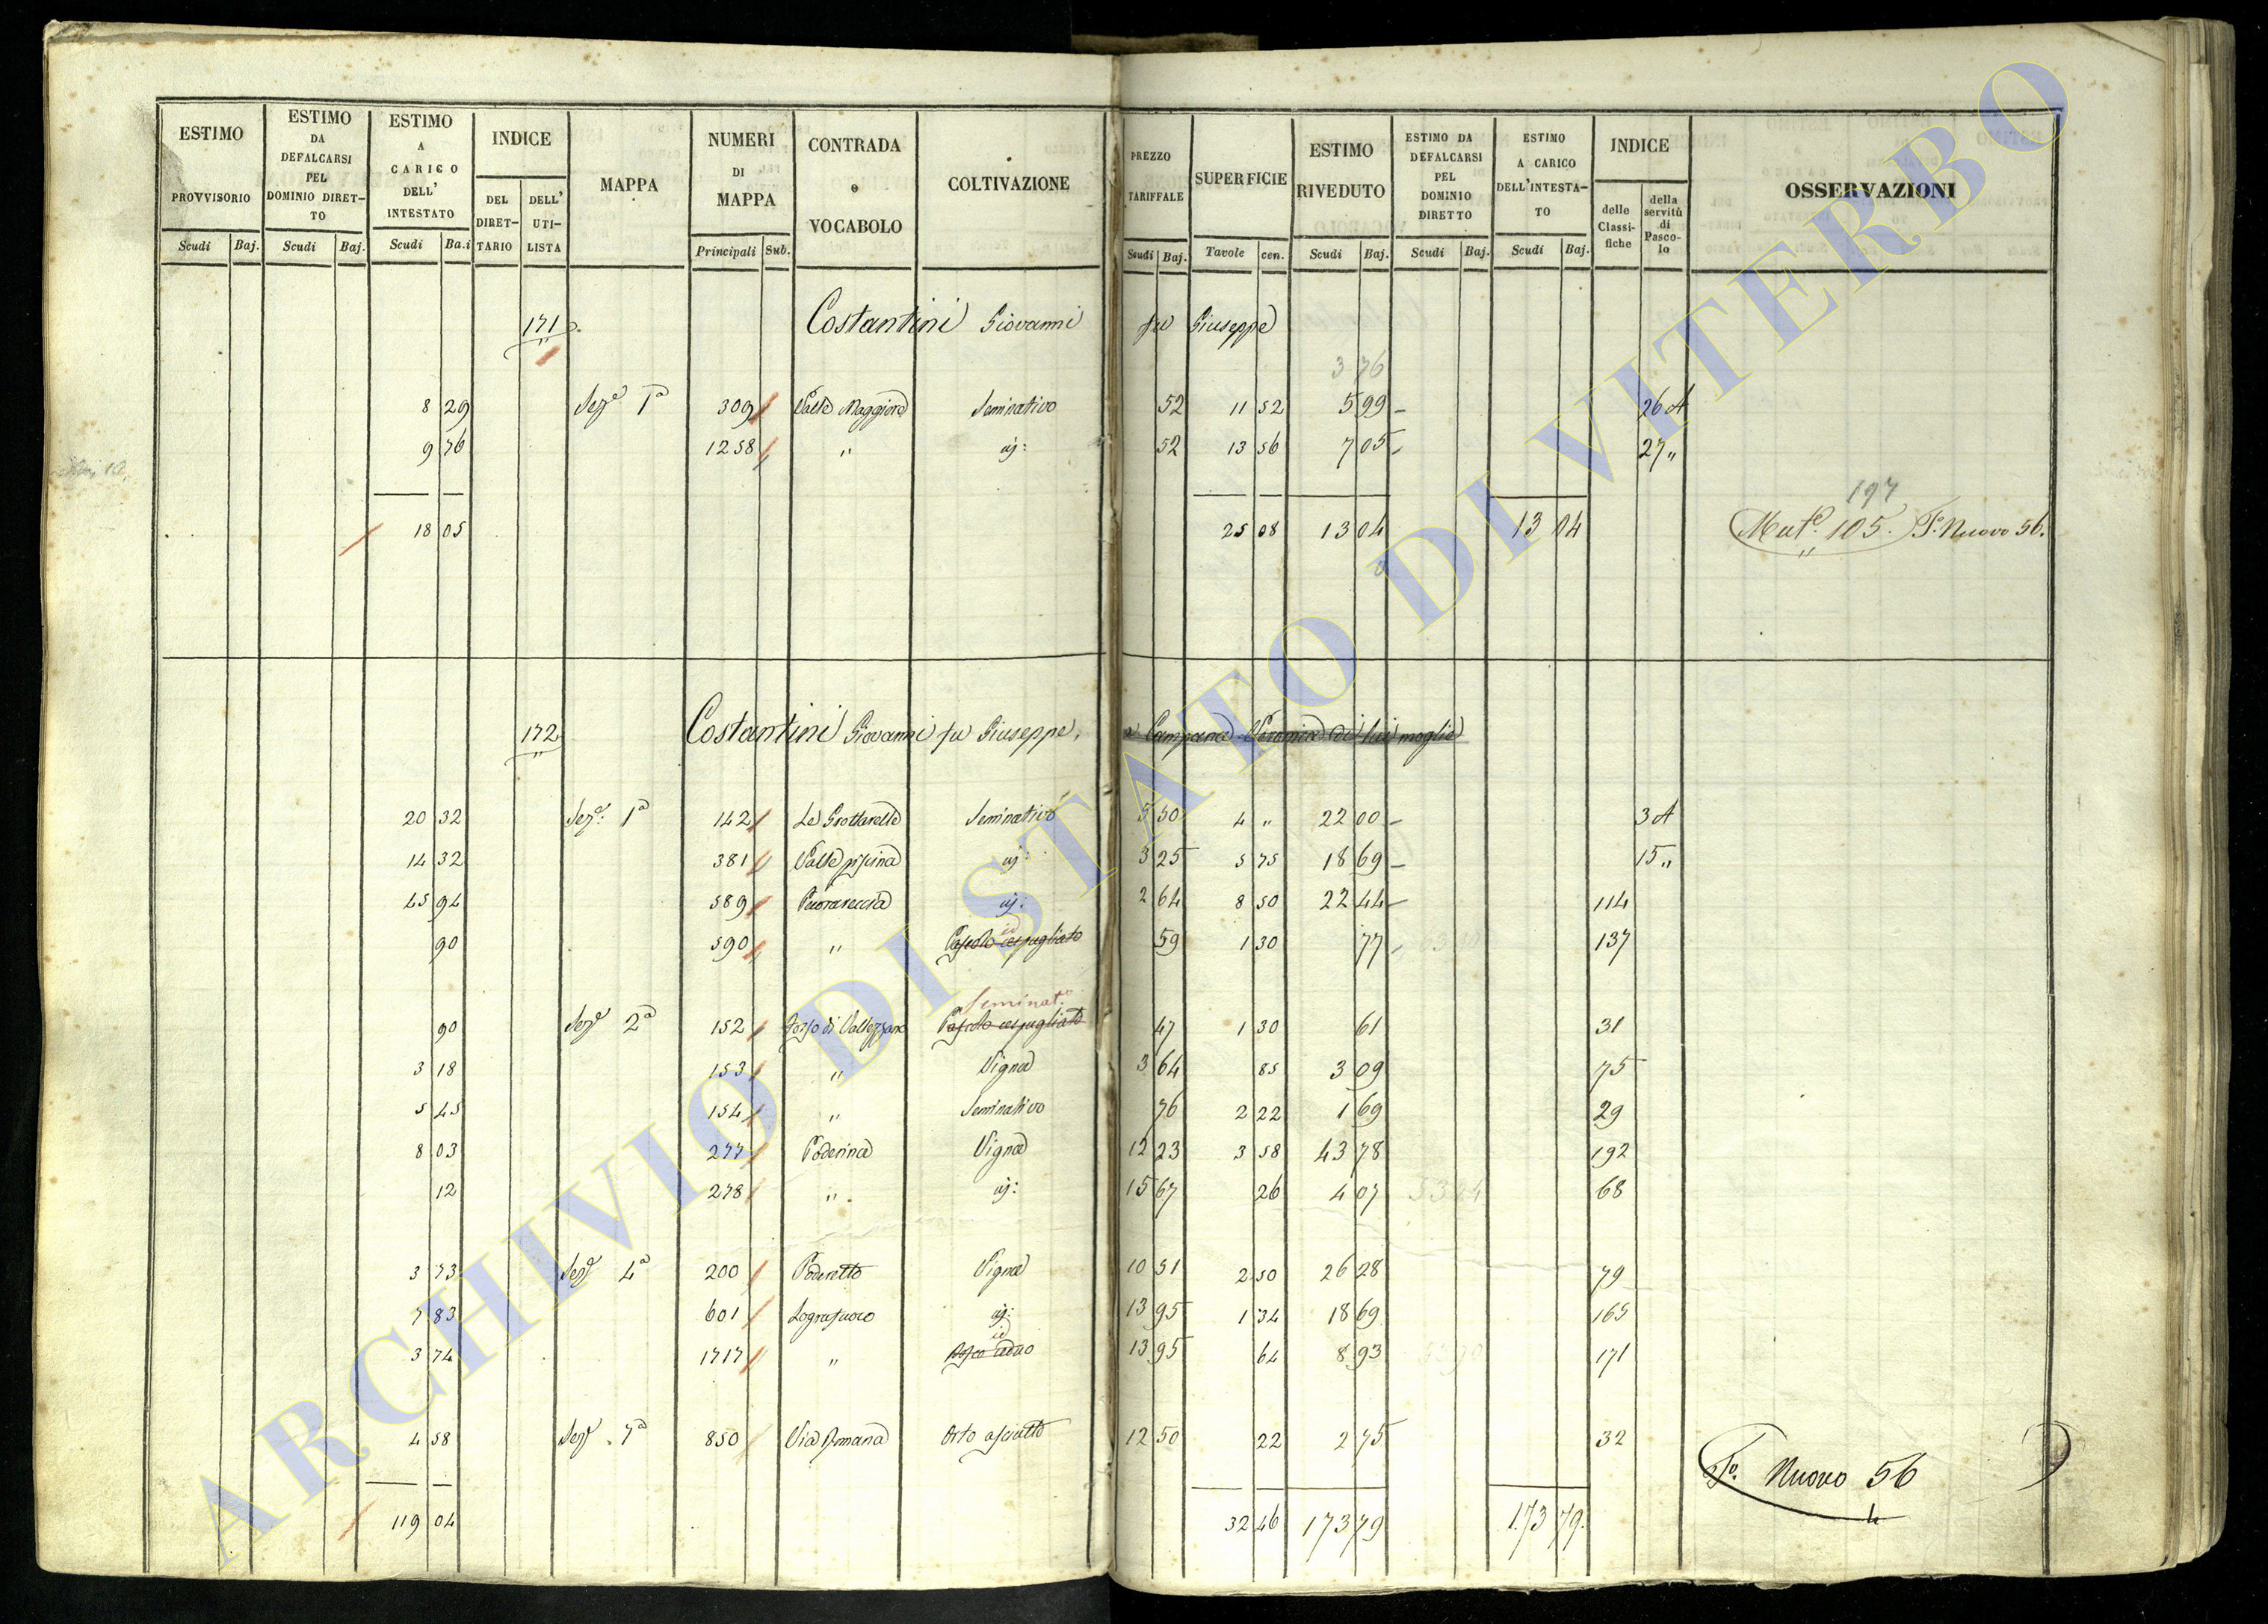 ESTIMO PROVVISORIO Scudi Baj.
ESTIMO DA DEFALCARSI PEL DOMINIO DIRET-TO Scudi Baj.
ESTIMO A CARICO DELL' INTESTATO Scudi Ba.i
INDICE DEL DIRET-TARIO DELL' UTI-LISTA
MAPPA
NUMERI DI MAPPA Principali Sub.
CONTRADA o VOCABOLO
COLTIVAZIONE
PREZZO TARIFFALE Scudi Baj.
SUPERFICIE Tavole cen.
ESTIMO RIVEDUTO Scudi Baj.
ESTIMO DA DEFALCARSI PEL DOMINIO DIRETTO Scudi Baj.
ESTIMO A CARICO DELL'INTESTA-TO Scudi Baj.
INDICE delle Classi-fiche della servitù di Pasco-lo
OSSERVAZIONI
171 Costantini Giovanni fu Giuseppe
3 76
8 29 Sez.e 1a 309 Valle Maggiore Seminativo 52 11 52 5 99 26 A
9 76 1258 " id: 52 13 56 7 05 27 "
197
18 05 25 08 13 04 13 04 Mut.e 105. P.o Nuovo 56.
172 Costantini Giovanni fu Giuseppe, e Campana Veronica di lui moglie
20 32 Sez.e 1a 142 Le Grottarelle Seminativo 5 50 4 " 22 00 3 A
14 32 381 Valle piscina id: 3 25 5 75 18 69 15 "
45 94 589 Pecorareccia id: 2 64 8 50 22 44 114
id
90 590 " Pascolo cespugliato 59 1 30 77 137
Seminat.o
90 Sez.e 2a 152 Fosso di Pascolo cespugliato 47 1 30 61 31
3 18 153 " Vigna 3 64 85 3 09 75
5 45 154 " Seminativo 76 2 22 1 69 29
8 03 277 Poderina Vigna 12 23 3 58 43 78 192
12 278 " id: 15 67 26 4 07 53 24 68
3 73 Sez.e 4a 200 Poderetto Vigna 10 51 2 50 26 28 79
7 83 601 Lograsuoco id: 13 95 1 34 18 69 165
id
3 74 1717 " Bosco ceduo 13 95 64 8 93 171
4 58 Sez.e 7a 850 Via Romana Orto asciutto 12 50 22 2 75 32
P.o Nuovo 56
119 04 32 46 173 79 173 79
ARCHIVIO DI STATO DI VITERBO